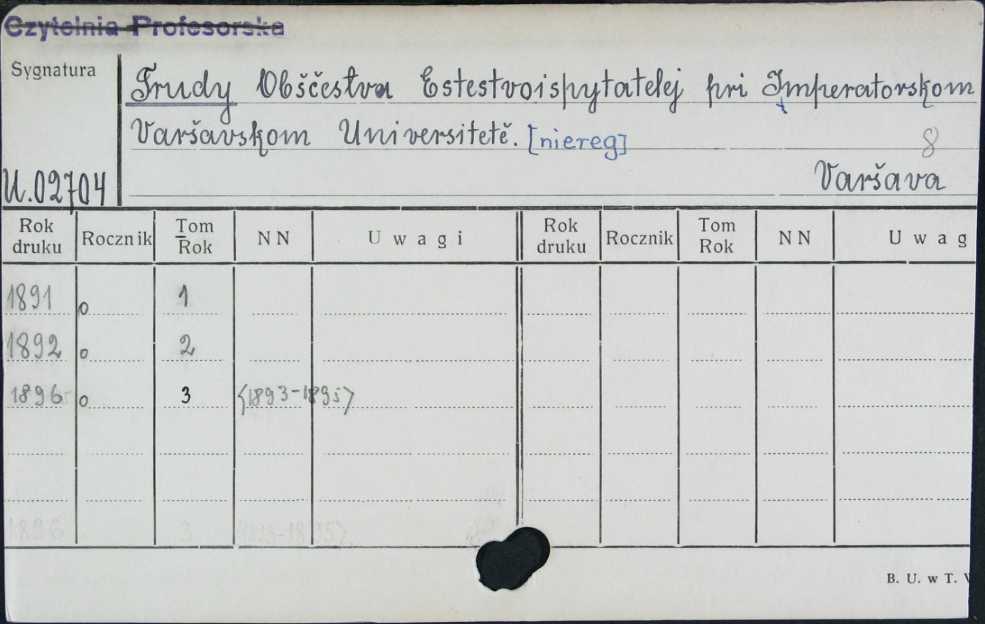 Czytelnia Profesorska
Sygnatura
Trudy Obščestva Estestvoispytatelej pri Imperatorskom
Varšavskom Universitetě. [niereg]
8
U.02704
Varšava
Rok druku Rocznik Tom Rok NN Uwagi Rok druku Rocznik Tom Rok NN Uwag
1891 0 1
1892 0 2
1896 0 3 <1893-1895>
1896 3
B. U. w T.